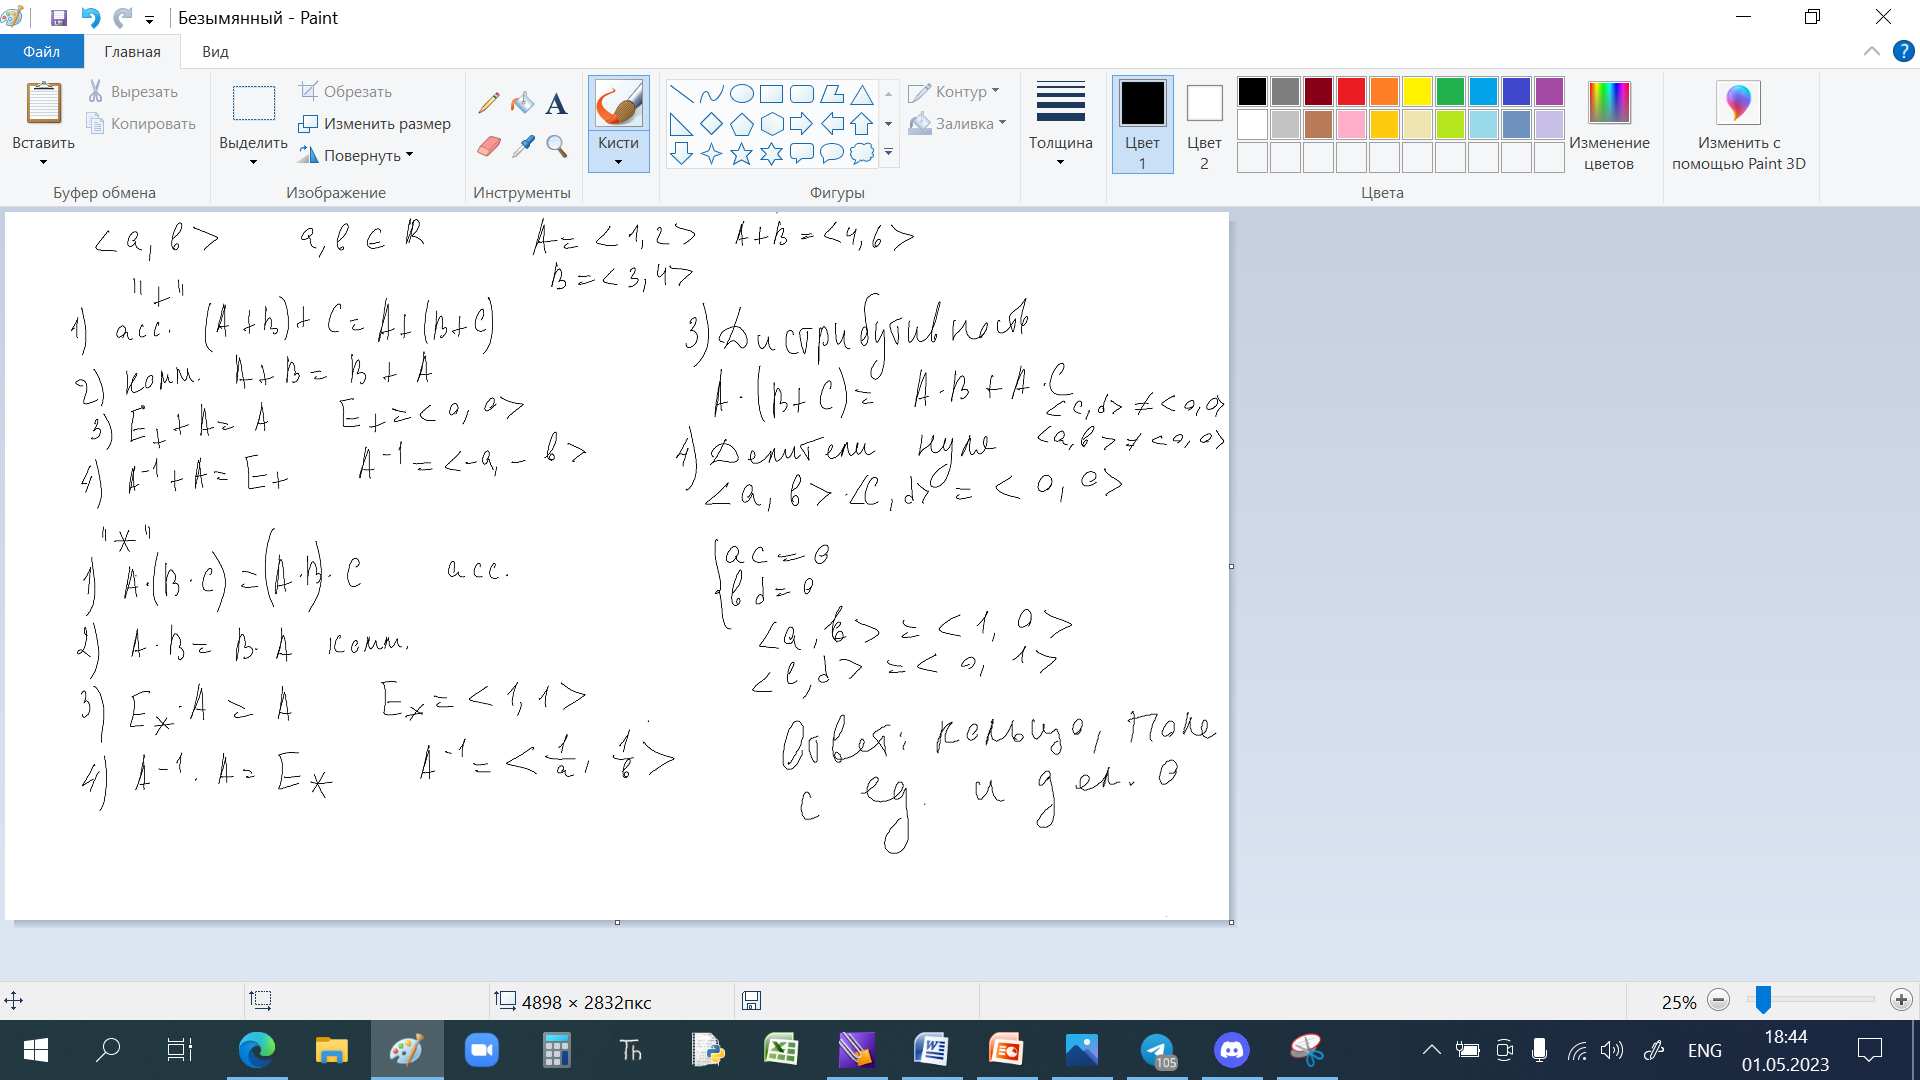 Безымянный - Paint
Файл
Главная
Вид
Вставить
Вырезать
Копировать
Буфер обмена
Выделить
Обрезать
Изменить размер
Повернуть
Изображение
A
Инструменты
Кисти
Контур
Заливка
Фигуры
Толщина
Цвет 1
Цвет 2
Изменение цветов
Цвета
Изменить с помощью Paint 3D
<a, b> a, b ∈ R A = <1, 2> A+B = <4, 6>
B = <3, 4>
"+"
1) асс. (A+B)+C = A+(B+C)
2) комм. A+B = B+A
3) E₊+A = A E₊ = <0, 0>
4) A⁻¹+A = E₊ A⁻¹ = <-a, -b>
"*"
1) A·(B·C) = (A·B)·C асс.
2) A·B = B·A комм.
3) E*·A = A E* = <1, 1>
4) A⁻¹·A = E* A⁻¹ = <1/a, 1/b>
3) Дистрибутивность
A·(B+C) = A·B+A·C
<c, d> ≠ <0, 0>
4) Делители нуля <a, b> ≠ <0, 0>
<a, b>·<c, d> = <0, 0>
{ac = 0
bd = 0
<a, b> = <1, 0>
<c, d> = <0, 1>
Ответ: кольцо, поле
с ед. и дел. 0
4898 × 2832пкс
25%
Th
105
ENG
18:44
01.05.2023